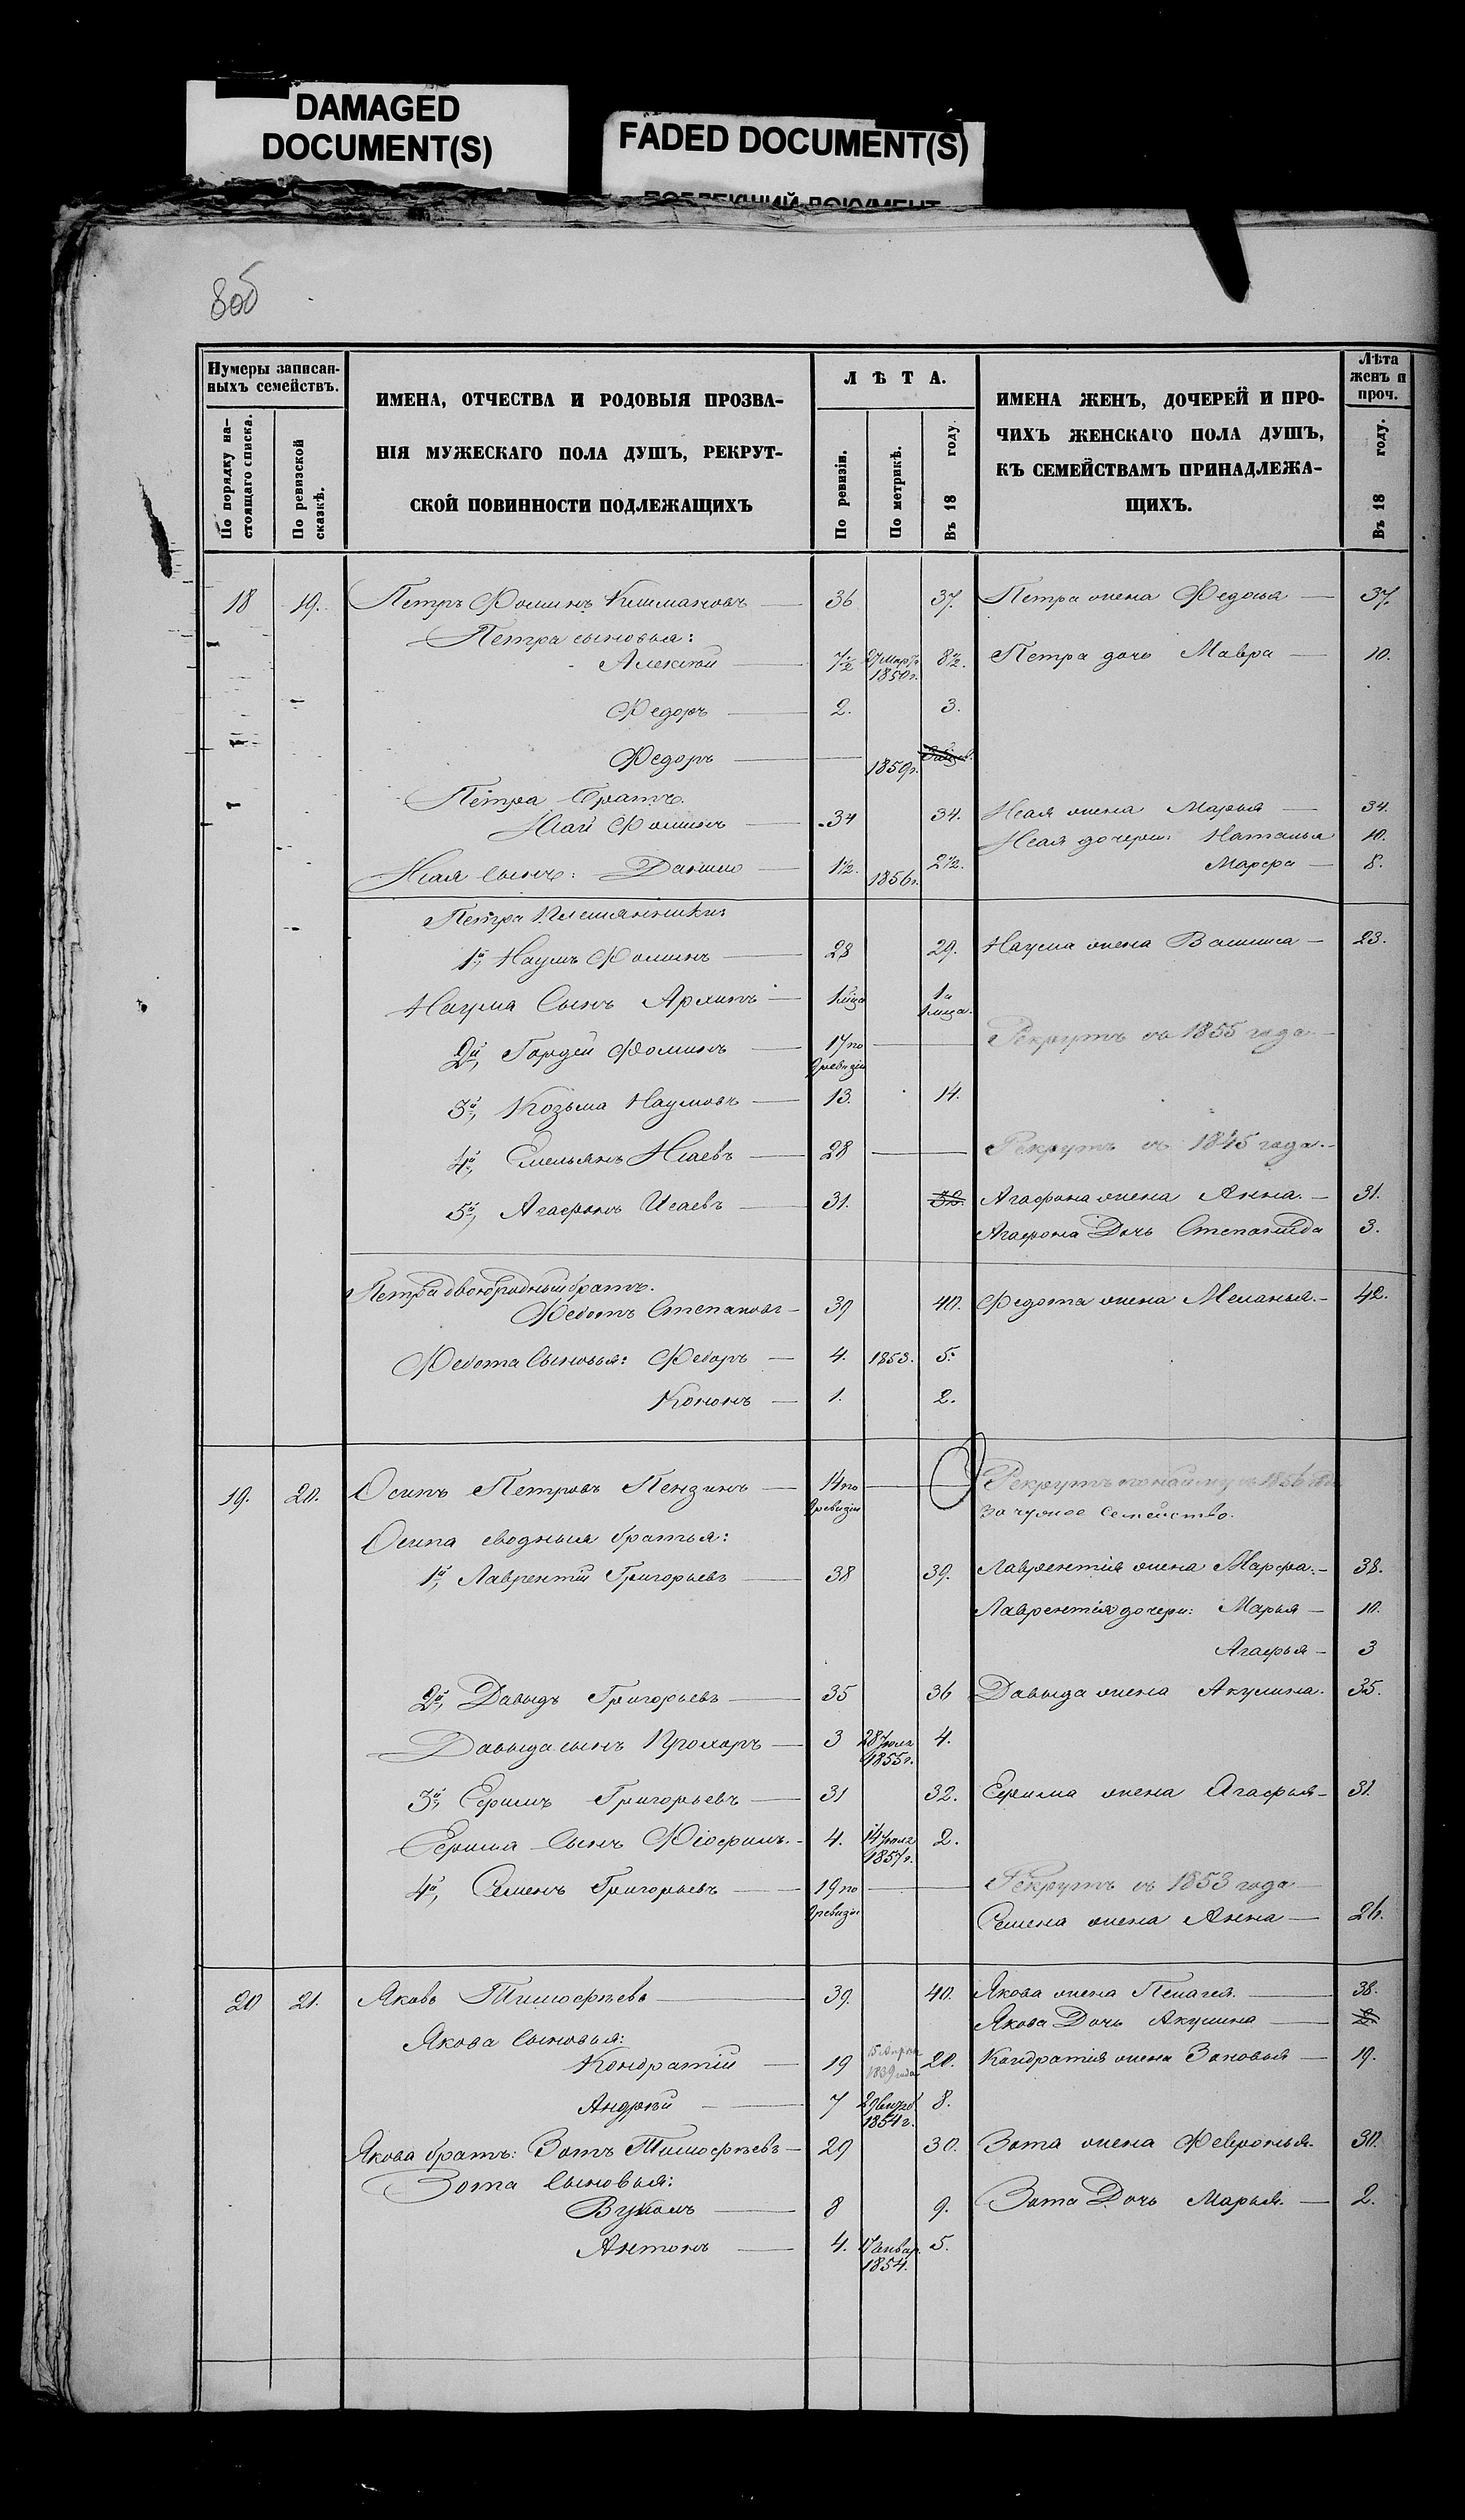 DAMAGED
DOCUMENT(S)
FADED DOCUMENT(S)
8об
Нумеры записан-
ныхъ семействъ.
По порядку на-
стоящаго списка.
По ревизской
сказкѣ.
ИМЕНА, ОТЧЕСТВА И РОДОВЫЯ ПРОЗВА-
НІЯ МУЖЕСКАГО ПОЛА ДУШЪ, РЕКРУТ-
СКОЙ ПОВИННОСТИ ПОДЛЕЖАЩИХЪ
ЛѢТА.
По ревизіи.
По метрикѣ.
Въ 18 году.
ИМЕНА ЖЕНЪ, ДОЧЕРЕЙ И ПРО-
ЧИХЪ ЖЕНСКАГО ПОЛА ДУШЪ,
КЪ СЕМЕЙСТВАМЪ ПРИНАДЛЕЖА-
ЩИХЪ.
Лѣта
женъ и
проч.
Въ 18 году.
18 19. Петръ Фоминъ 36 37. Петра жена Федосья — 37.
Петра сыновья:
Алексѣй — 7½ 27 Марта 1850г. 8½. Петра дочь Мавра — 10.
Федоръ — 2. 3.
Федоръ — 1859г.
Петра братъ.
Исай Фоминъ — 34 34. Исая жена Марья — 34.
Исая дочери: Наталья 10.
Исая сынъ: Данило — 1½. 1856г. 2½. Марфа — 8.
Петра племянники:
1й, Наумъ Фоминъ — 28 29. Наума жена Васил̣иса — 23.
Наума Сынъ Архипъ — 1 мѣца 1 и 1 мѣца.
2й, Гордей Фоминъ — 17 по ревизіи — Рекрутъ въ 1855 года —
3й, Козьма Наумовъ — 13. 14.
4й, Емельянъ Исаевъ — 28 — Рекрутъ въ 1845 года. —
5й, Агафонъ Исаевъ — 31. 32. Агафона жена Анна. — 31.
Агафона Дочь Степанида 3.
Петра двоюродный братъ.
Федотъ Степановъ — 39 40. Федота жена Меланья. — 42.
Федота сыновья: Федоръ — 4. 1853. 5.
Кононъ — 1. 2.
19. 20. Осипъ Петровъ Пензинъ — 14 по ревизіи — Рекрутъ по найму въ 1856 года
за чужое семейство.
Осипа сводныя братья:
1й, Лаврентій Григорьевъ — 38 39. Лаврентія жена Марфа. — 38.
Лаврентія дочери: Марья — 10.
Агафья — 3
2й, Давыдъ Григорьевъ — 35 36 Давыда жена Акулина. 35.
Давыда сынъ Прохоръ — 3 28 Іюля 1855г. 4.
3й, Ефимъ Григорьевъ — 31 32. Ефима жена Агафья — 31.
Ефима Сынъ — 4. 14 Іюля 1857г. 2.
4й, Семенъ Григорьевъ — 19 по ревизіи — Рекрутъ въ 1853 года
Семена жена Анна — 26.
20 21. Яковъ Тимофѣевъ — 39. 40. Якова жена Пелагея. — 38.
Якова Дочь Акулина —
Якова сыновья:
Кондратій — 19 15 Апрѣля 1839 года 20. Кондратія жена Зиновья — 19.
Андрей — 7 1851г. 8.
Якова братъ: Зотъ Тимофѣевъ — 29 30. Зота жена Февронья. 30.
Зота сыновья:
Вуколъ — 8 9. Зота Дочь Марья. — 2.
Антонъ — 4. 17 Январ. 1854. 5.